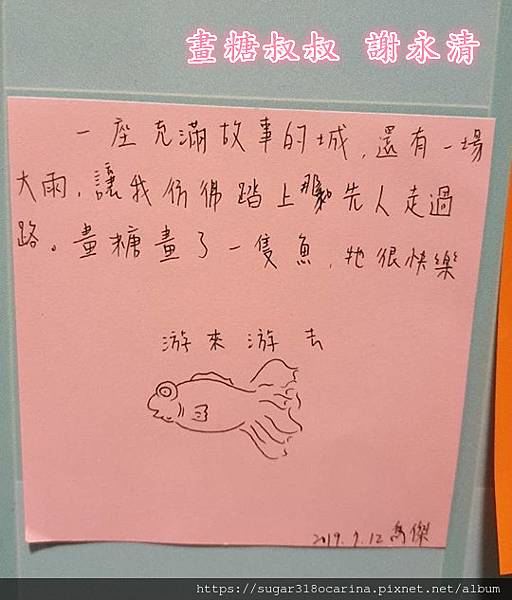 畫糖叔叔 謝永清
一座充滿故事的城,還有一場
大雨,讓我彷彿踏上那先人走過
路。畫糖畫了一隻魚,牠很快樂
游來游去
2019.9.12 喬傑
https://sugar318ocarina.pixnet.net/album